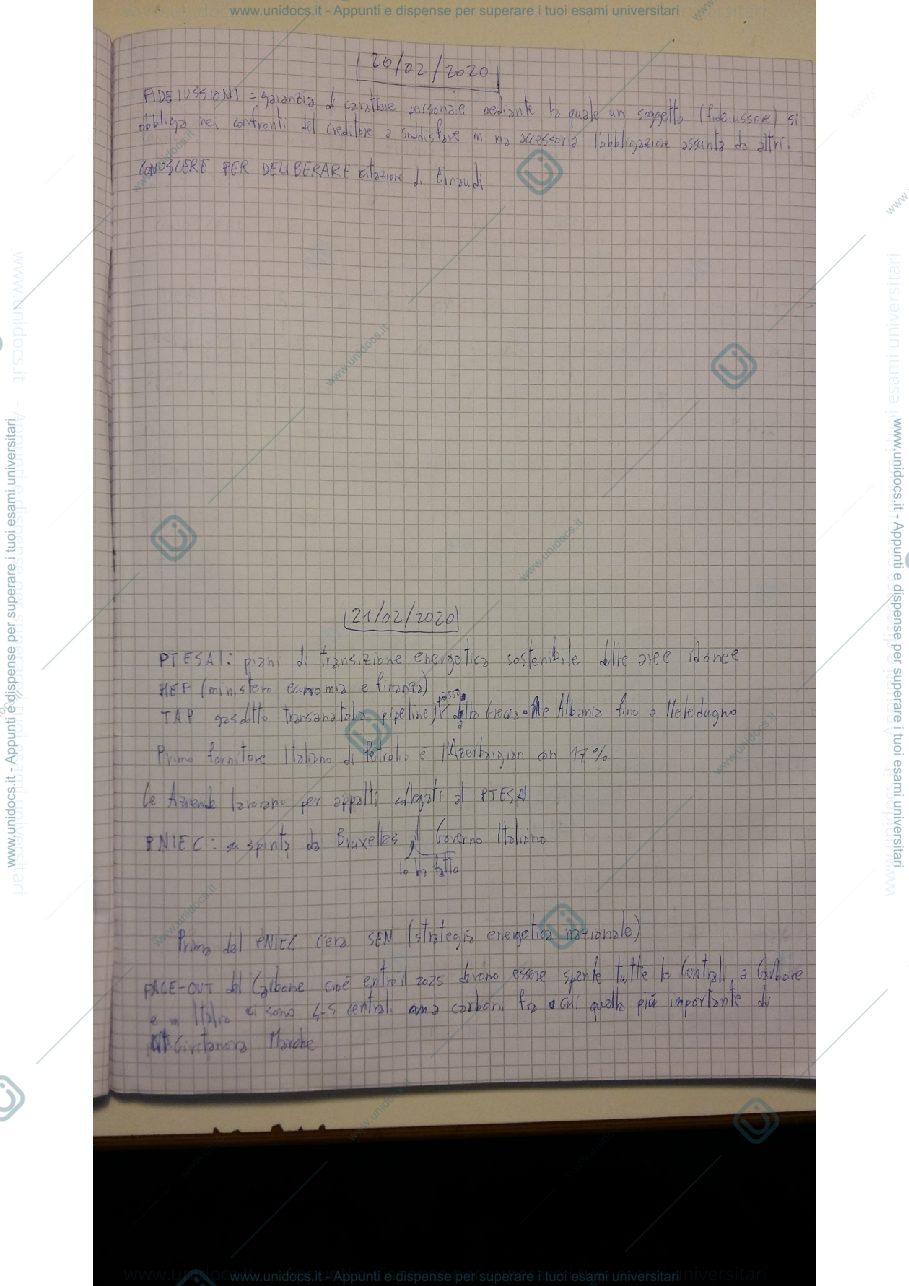 www.unidocs.it - Appunti e dispense per superare i tuoi esami universitari
20/02/2020
FIDEIUSSIONI = garanzia di carattere personale mediante la quale un soggetto (fideiussore) si
obbliga nei confronti del creditore a soddisfare in accessoria l'obbligazione assunta da altri.
CONOSCERE PER DELIBERARE citazione di Einaudi
21/02/2020
PTESAI: piani di transizione energetica sostenibile delle aree idonee
MEF (ministero economia e finanza)
TAP gasdotto pipeline) Albania fino a Melendugno
Primo fornitore Italiano di Petrolio è l'Azerbaigian con 17%
Le Aziende lavorano per appalti collegati al PTESAI
PNIEC: spinta da Bruxelles il Governo Italiano
lo ha fatto
Prima del PNIEC c'era SEN (strategia energetica nazionale)
FACE-OUT del Carbone cioè entro il 2025 devono essere spente tutte le Centrali a Carbone
e in Italia ci sono 4-5 centrali a carbone fra cui quella più importante di
Civitanova Marche
www.unidocs.it - Appunti e dispense per superare i tuoi esami universitari